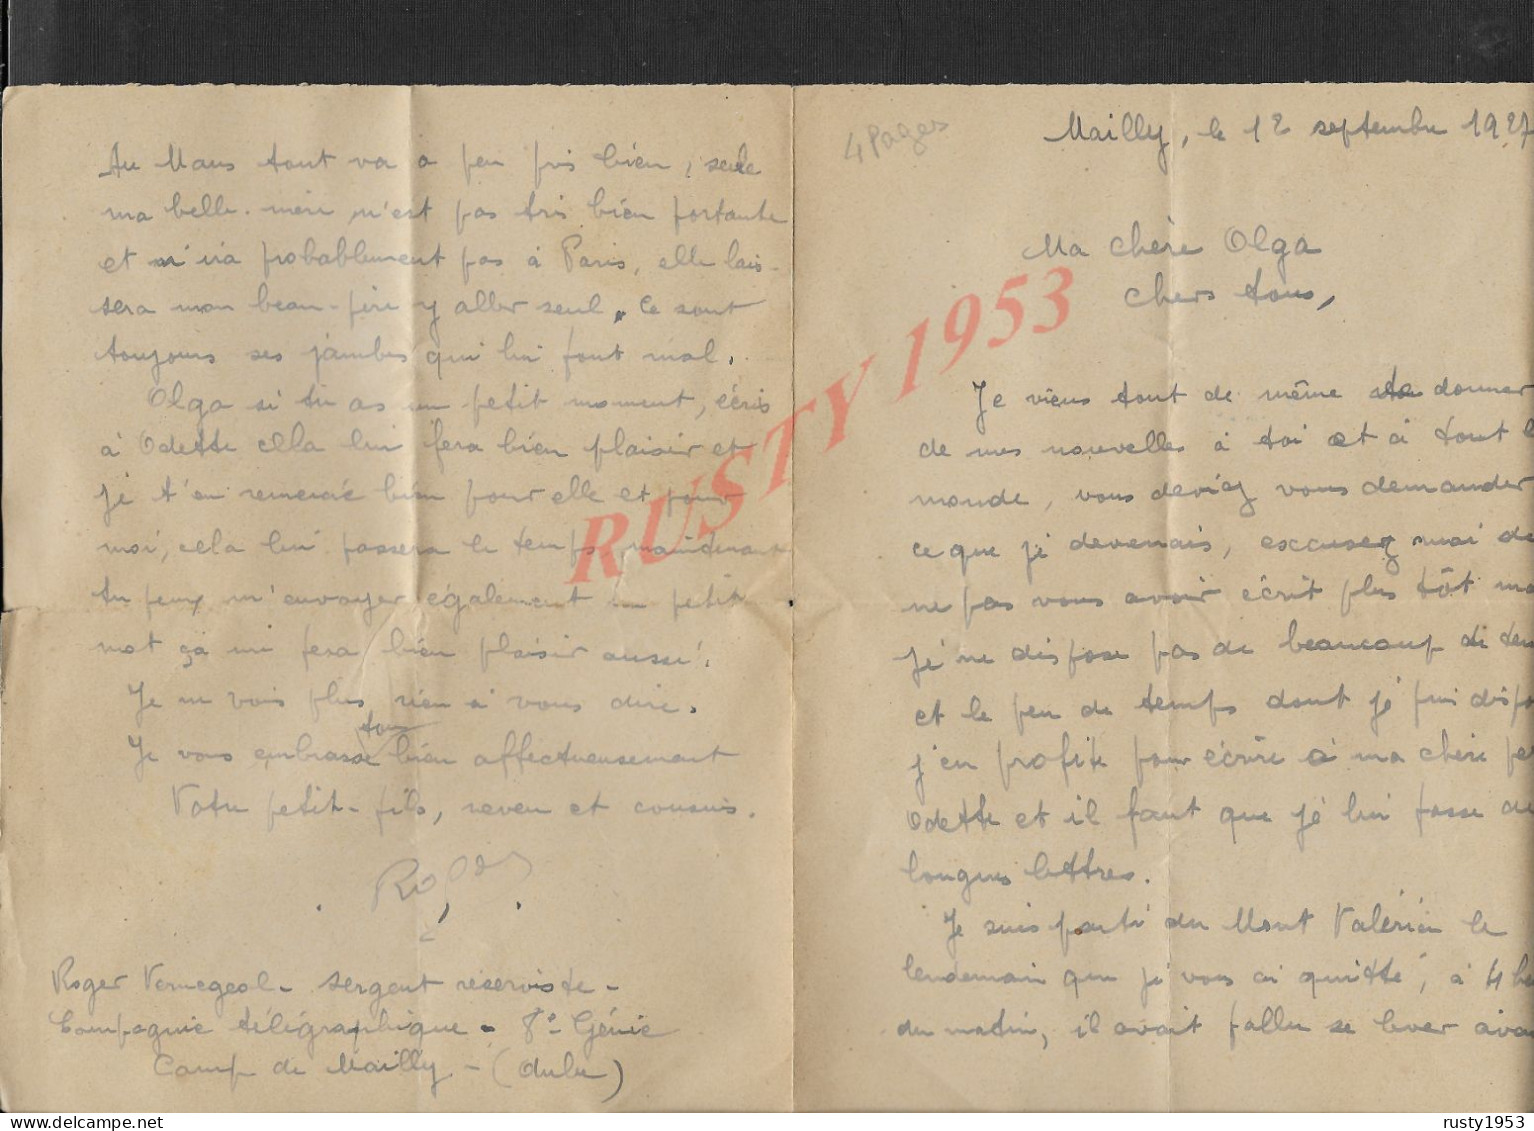 4 Pages
Mailly, le 12 septembre 1927
Ma chère Olga
Chers tous,
Je viens tout de même donner
de mes nouvelles à toi et à tout l
monde, vous deviez vous demander
ce que je devenais, excusez moi de
ne pas vous avoir écrit plus tôt ma
je ne dispose pas de beaucoup de tem
et le peu de temps dont je puis dispo
j'en profite pour écrire à ma chère pe
Odette et il faut que je lui fasse de
longues lettres.
Je suis parti du Mont Valérien le
lendemain que je vous ai quitté, à 4 he
du matin, il avait fallu se lever avan
Au Mans tout va a peu près bien, seule
ma belle-mère n'est pas très bien portante
et n'ira probablement pas à Paris, elle lais-
sera mon beau-père y aller seul. Ce sont
toujours ses jambes qui lui font mal.
Olga si tu as un petit moment, écris
à Odette cela lui fera bien plaisir et
je t'en remercie bien pour elle et pour
moi, cela lui passera le temps, maintenant
tu peux m'envoyer également un petit
mot ça me fera bien plaisir aussi.
Je ne vois plus rien à vous dire.
Je vous embrasse tous bien affectueusement
Votre petit-fils, neveu et cousin.
Roger
Roger Vernegeol - sergent réserviste -
Compagnie télégraphique - 8e Génie
Camp de Mailly - (Aube)
RUSTY 1953
delcampe.net
rusty1953